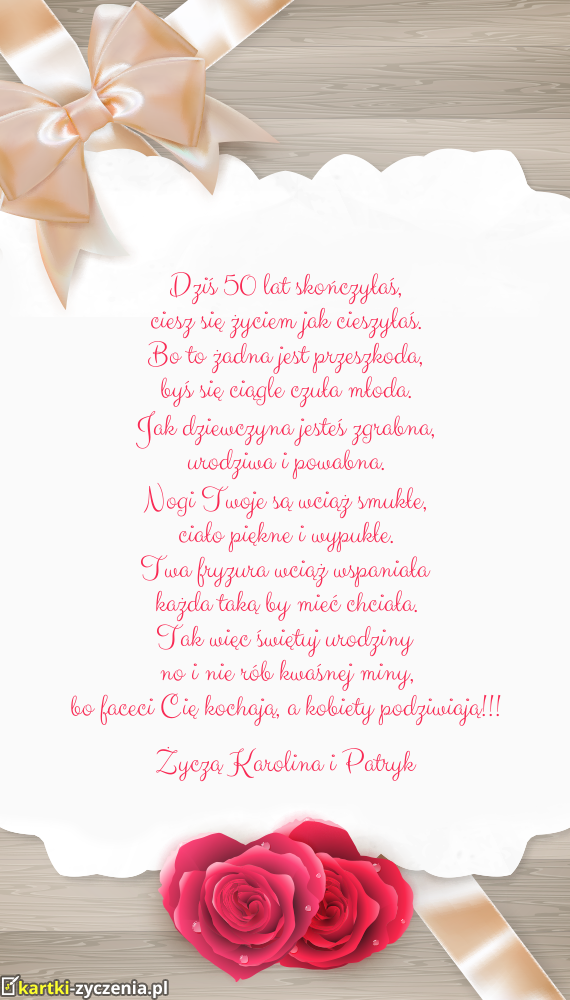 Dziś 50 lat skończyłaś,
ciesz się życiem jak cieszyłaś.
Bo to żadna jest przeszkoda,
byś się ciągle czuła młoda.
Jak dziewczyna jesteś zgrabna,
urodziwa i powabna.
Nogi Twoje są wciąż smukłe,
ciało piękne i wypukłe.
Twa fryzura wciąż wspaniała
każda taką by mieć chciała.
Tak więc świętuj urodziny
no i nie rób kwaśnej miny,
bo faceci Cię kochają, a kobiety podziwiają!!!
Życzą Karolina i Patryk
kartki-zyczenia.pl